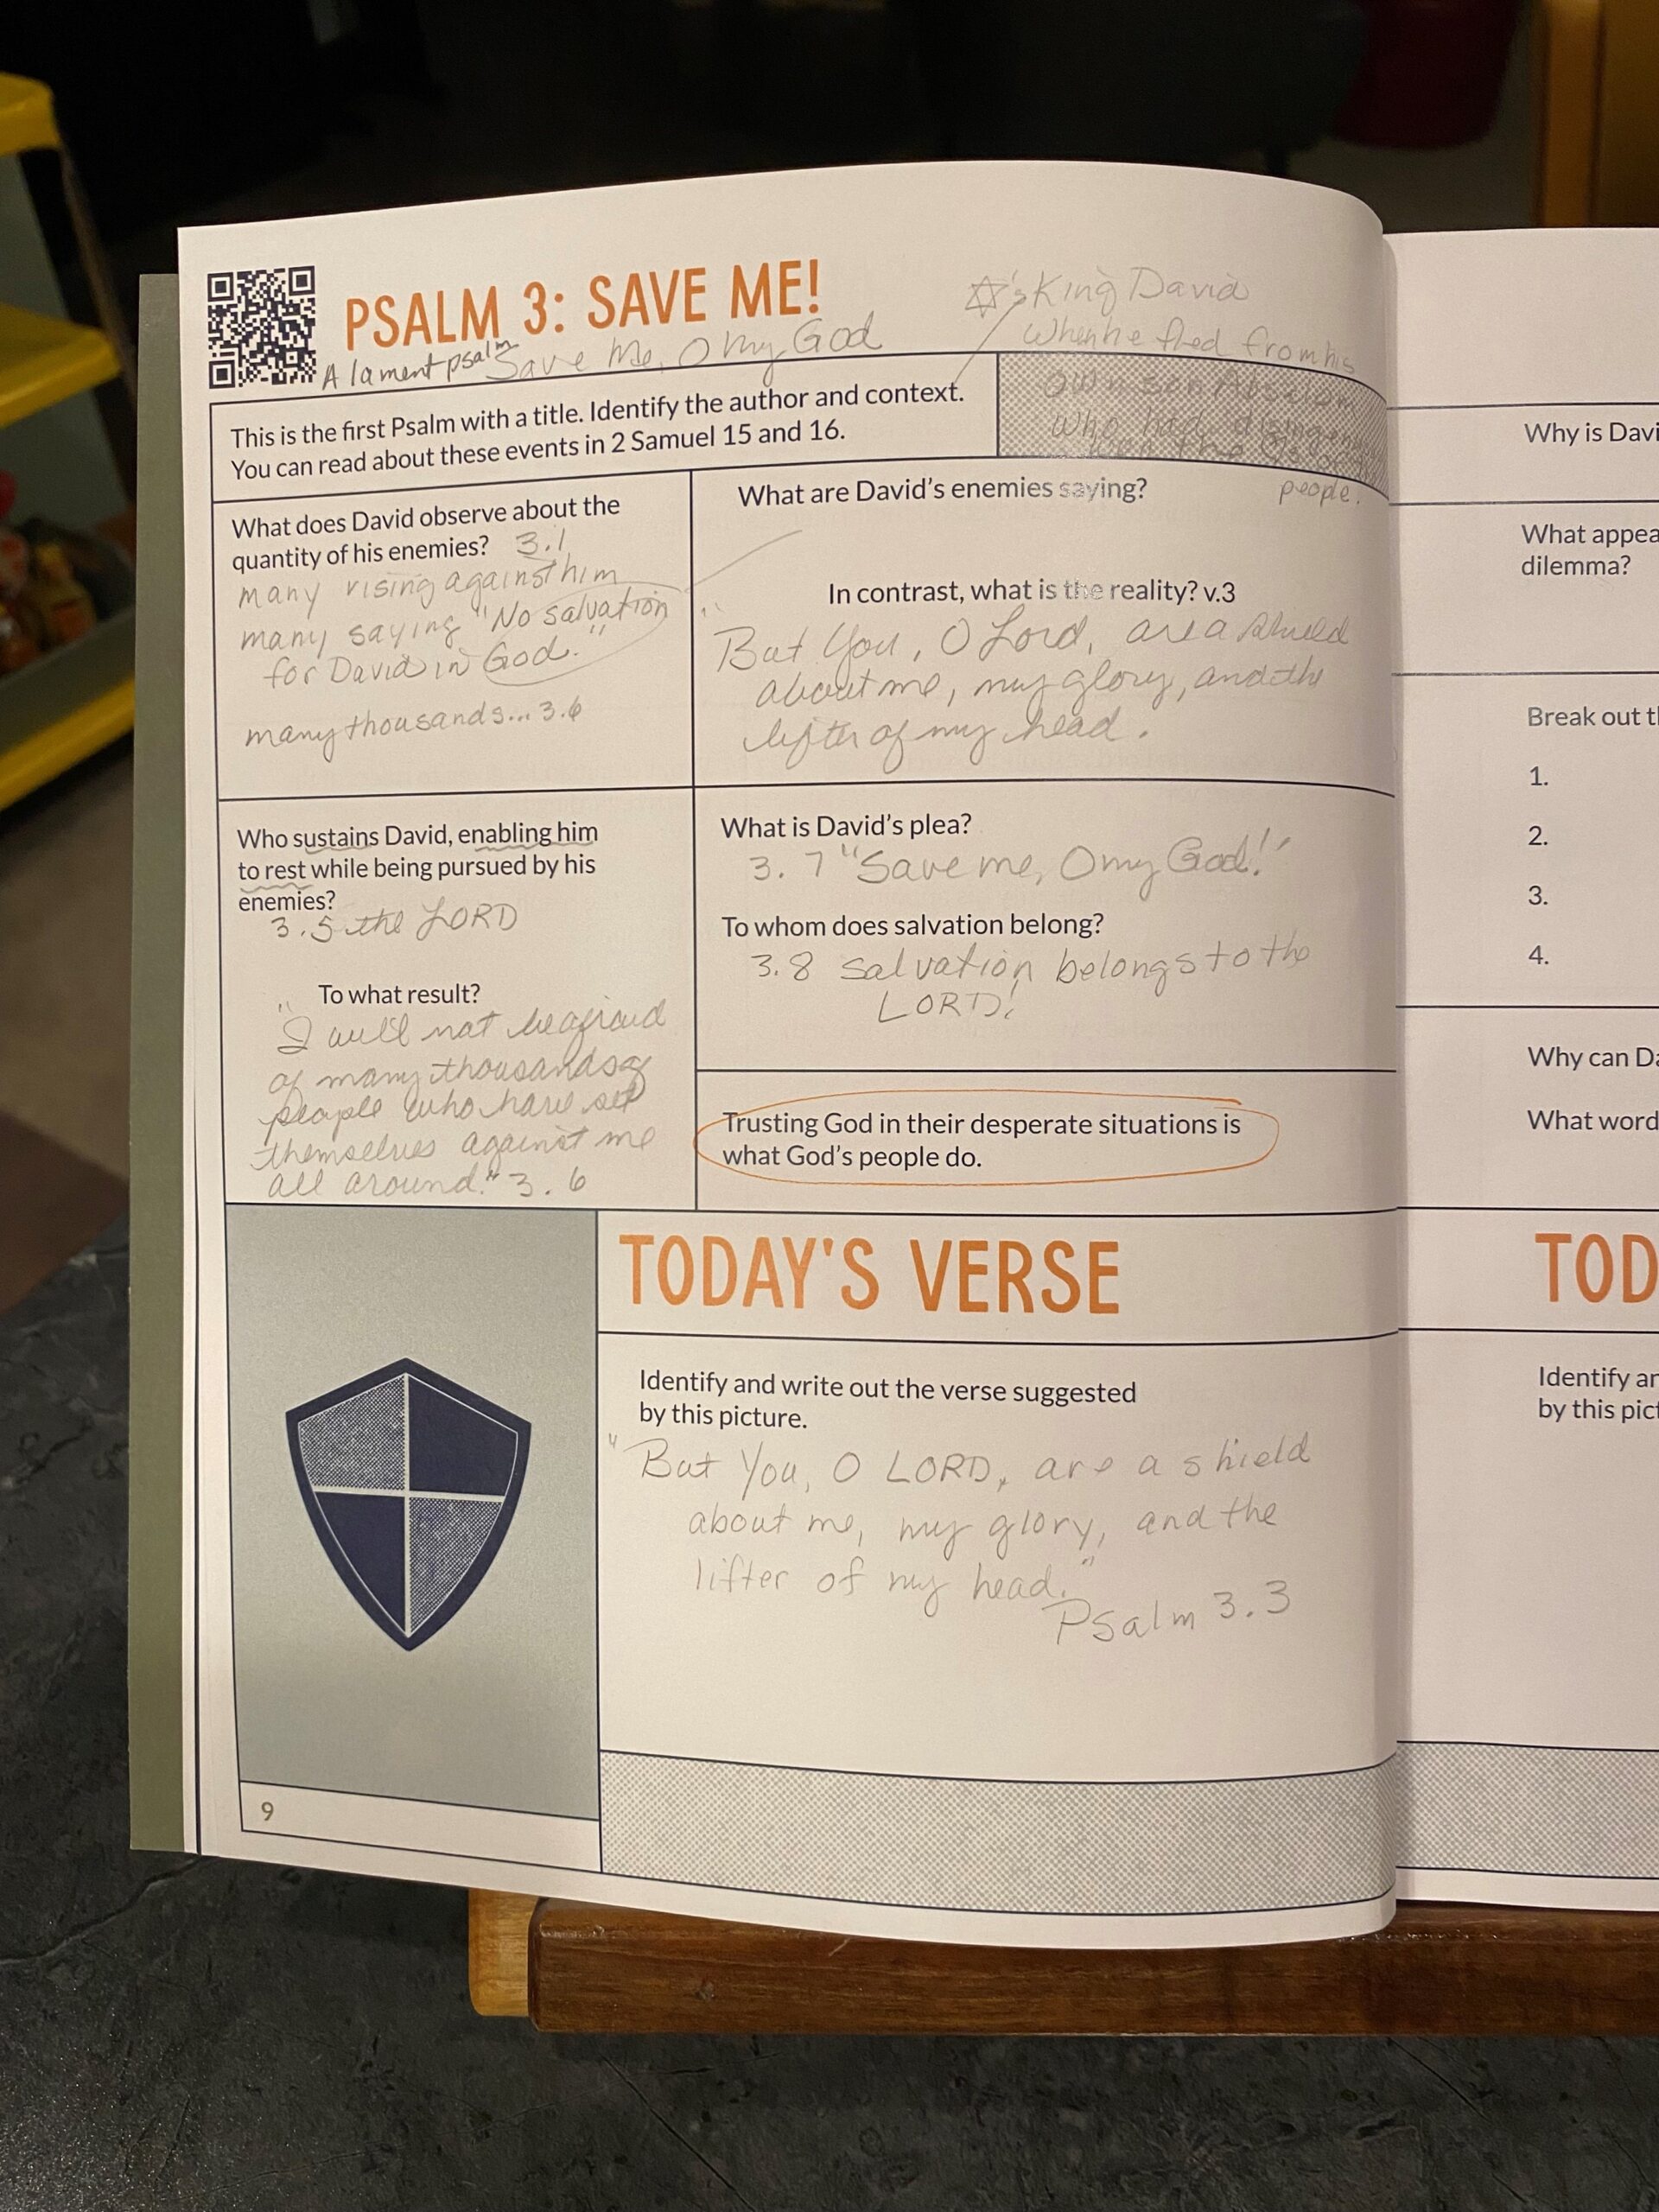 PSALM 3: SAVE ME!
A lament psalm Save Me, O my God
's King David
When he fled from his
own son
who had
the
people.
This is the first Psalm with a title. Identify the author and context.
You can read about these events in 2 Samuel 15 and 16.
What does David observe about the
quantity of his enemies? 3.1
many rising against him
many saying "No salvation
for David in God."
many thousands... 3.6
What are David's enemies saying?
In contrast, what is the reality? v.3
"But You, O Lord, are a shield
about me, my glory, and the
lifter of my head.
Who sustains David, enabling him
to rest while being pursued by his
enemies?
3.5 the LORD
To what result?
"I will not be afraid
of many thousands of
people who have set
themselves against me
all around." 3.6
What is David's plea?
3.7 "Save me, O my God!"
To whom does salvation belong?
3.8 salvation belongs to the
LORD!
Trusting God in their desperate situations is
what God's people do.
TODAY'S VERSE
Identify and write out the verse suggested
by this picture.
"But You, O LORD, are a shield
about me, my glory, and the
lifter of my head."
Psalm 3.3
9
Why is Davi
What appea
dilemma?
Break out th
1.
2.
3.
4.
Why can Da
What word
TOD
Identify an
by this pict